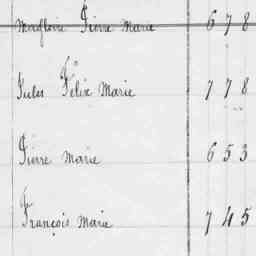 Magloire Pierre Marie 6 7 8
Jules Félix Marie 7 7 8
Pierre Marie 6 5 3
François Marie 7 4 5